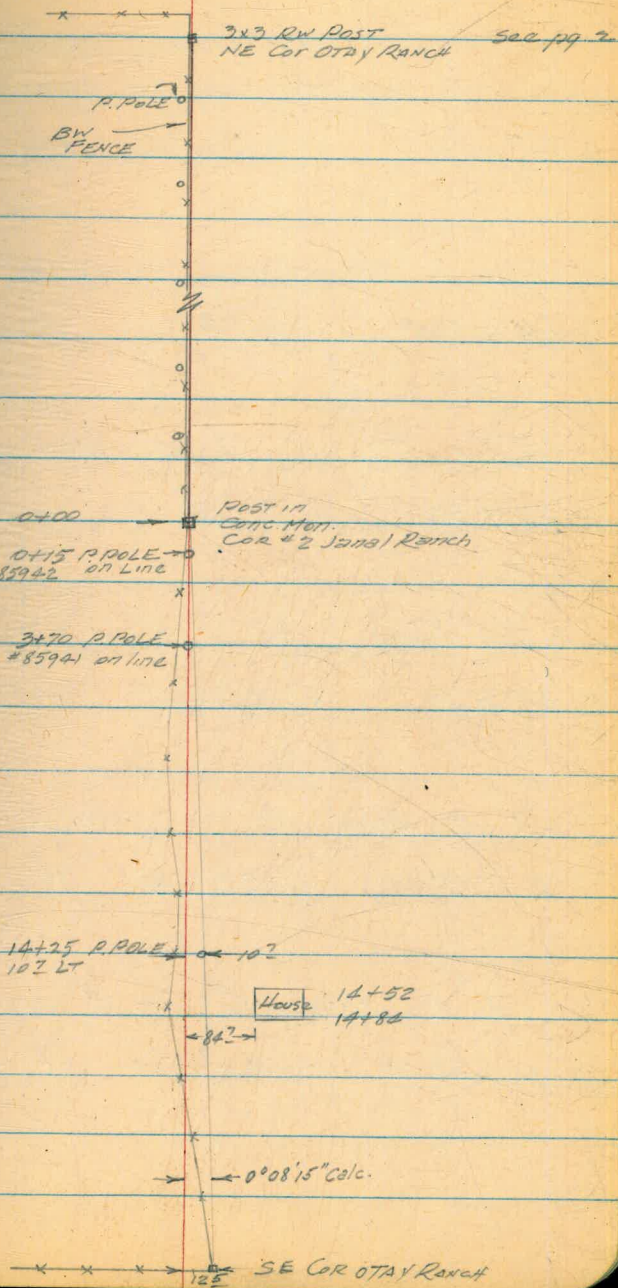 3x3 RW POST See pg 2
NE Cor OTAY RANCH
P. POLE
BW
FENCE
0+00
POST in
Conc. Mon.
COR #2 Janal Ranch
0+15 P. POLE
85942 on Line
3+70 P. POLE
#85941 on line
14+25 P. POLE
10⁷ LT
10⁷
House
14+52
14+84
84⁷
0°08'15" Calc.
12⁵
SE COR OTAY RANCH